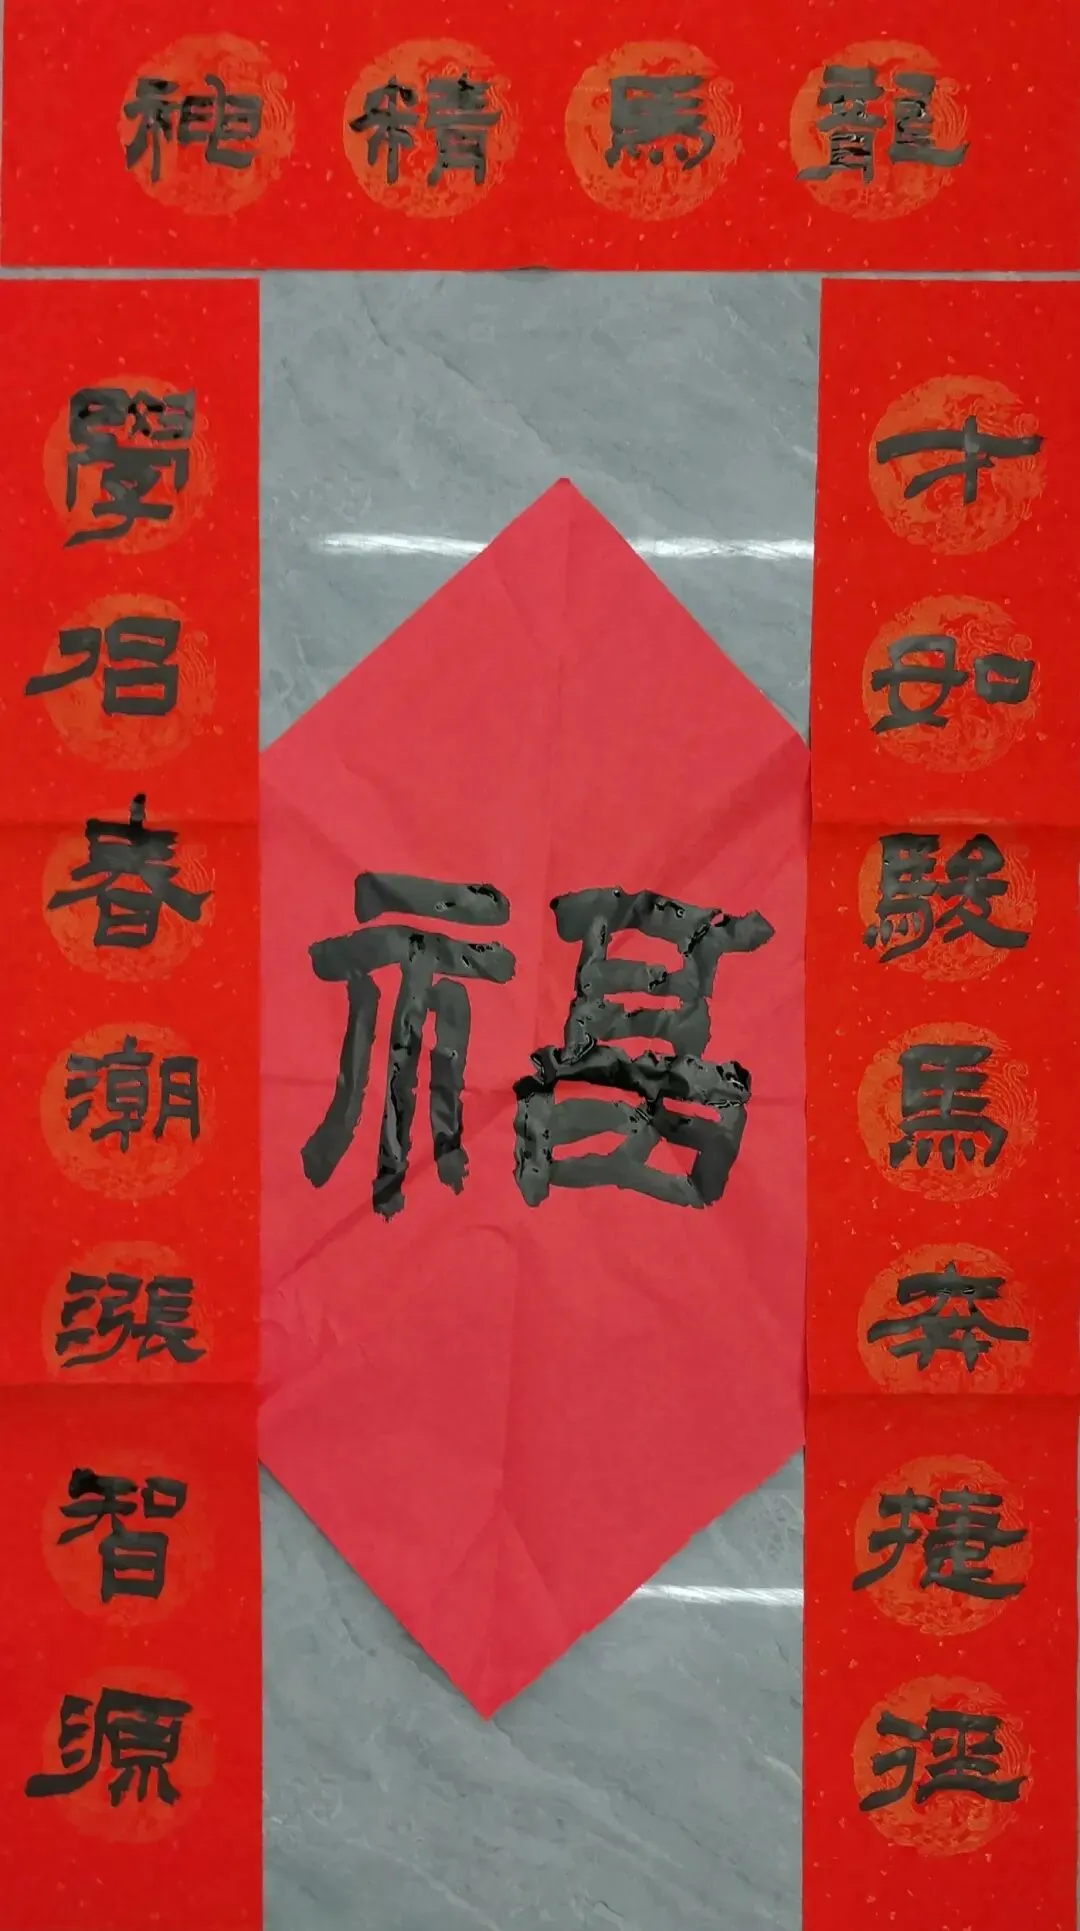 龍馬精神
才如駿馬奔捷徑
學似春潮漲智源
福